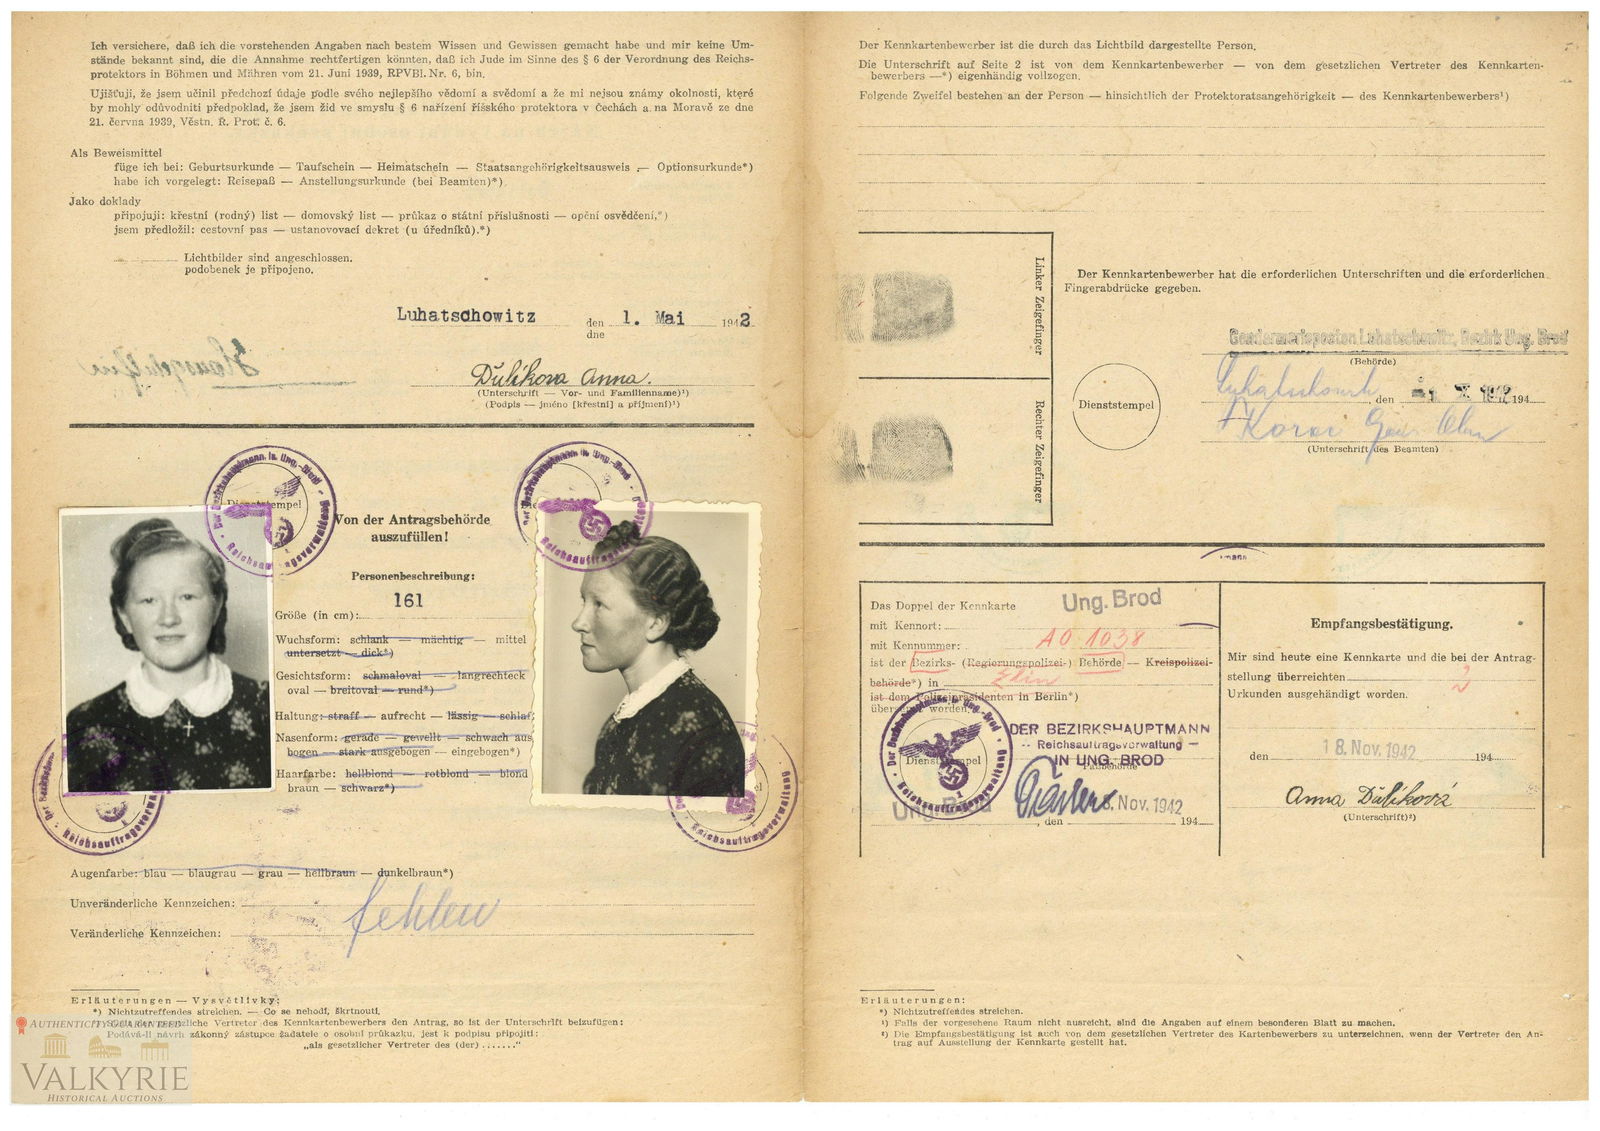 Ich versichere, daß ich die vorstehenden Angaben nach bestem Wissen und Gewissen gemacht habe und mir keine Um-
stände bekannt sind, die die Annahme rechtfertigen könnten, daß ich Jude im Sinne des § 6 der Verordnung des Reichs-
protektors in Böhmen und Mähren vom 21. Juni 1939, RPVBl. Nr. 6, bin.
Ujišťuji, že jsem učinil předchozí údaje podle svého nejlepšího vědomí a svědomí a že mi nejsou známy okolnosti, které
by mohly odůvodniti předpoklad, že jsem žid ve smyslu § 6 nařízení říšského protektora v Čechách a na Moravě ze dne
21. června 1939, Věstn. Ř. Prot. č. 6.
Als Beweismittel
füge ich bei: Geburtsurkunde — Taufschein — Heimatschein — Staatsangehörigkeitsausweis — Optionsurkunde*)
habe ich vorgelegt: Reisepaß — Anstellungsurkunde (bei Beamten)*)
Jako doklady
připojuji: křestní (rodný) list — domovský list — průkaz o státní příslušnosti — opční osvědčení,*)
jsem předložil: cestovní pas — ustanovovací dekret (u úředníků).*)
Lichtbilder sind angeschlossen.
podobenek je připojeno.
Luhatschowitz den 1. Mai 1942
dne
Ďulíkova Anna.
(Unterschrift — Vor- und Familienname)¹)
(Podpis — jméno [křestní] a příjmení)¹)
Der Bezirkshauptmann in Ung.-Brod
Reichsauftragsverwaltung
Dienststempel
Von der Antragsbehörde
auszufüllen!
Der Bezirkshauptmann in Ung.-Brod
Reichsauftragsverwaltung
Personenbeschreibung:
161
Größe (in cm):
Wuchsform: schlank — mächtig — mittel
untersetzt — dick*)
Gesichtsform: schmaloval — langrechteck
oval — breitoval — rund*)
Haltung: straff — aufrecht — lässig — schlaf
Nasenform: gerade — gewellt — schwach aus
bogen — stark ausgebogen — eingebogen*)
Haarfarbe: hellblond — rotblond — blond
braun — schwarz*)
Reichsauftragsverwaltung
Reichsauftragsverwaltung
Augenfarbe: blau — blaugrau — grau — hellbraun — dunkelbraun*)
Unveränderliche Kennzeichen:
fehlen
Veränderliche Kennzeichen:
Erläuterungen — Vysvětlivky:
*) Nichtzutreffendes streichen. — Co se nehodí, škrtnouti.
¹) Stellt der gesetzliche Vertreter des Kennkartenbewerbers den Antrag, so ist der Unterschrift beizufügen:
Podává-li návrh zákonný zástupce žadatele o osobní průkazku, jest k podpisu připojiti:
„als gesetzlicher Vertreter des (der) ......."
AUTHENTICITY GUARANTEED
VALKYRIE
HISTORICAL AUCTIONS
Der Kennkartenbewerber ist die durch das Lichtbild dargestellte Person.
Die Unterschrift auf Seite 2 ist von dem Kennkartenbewerber — von dem gesetzlichen Vertreter des Kennkarten-
bewerbers —*) eigenhändig vollzogen.
Folgende Zweifel bestehen an der Person — hinsichtlich der Protektoratsangehörigkeit — des Kennkartenbewerbers¹)
Linker Zeigefinger
Rechter Zeigefinger
Der Kennkartenbewerber hat die erforderlichen Unterschriften und die erforderlichen
Fingerabdrücke gegeben.
Gendarmerieposten Luhatschowitz, Bezirk Ung. Brod
(Behörde)
Dienststempel
Luhatschowitz, den 1942 194
(Unterschrift des Beamten)
Das Doppel der Kennkarte
Ung. Brod
mit Kennort:
mit Kennummer: A0 1038
ist der Bezirks- (Regierungspolizei-) Behörde — Kreispolizei-
behörde*) in Zlin
ist dem Polizeipräsidenten in Berlin*)
übersandt worden.
Der Bezirkshauptmann in Ung.-Brod
Reichsauftragsverwaltung
Dienststempel
DER BEZIRKSHAUPTMANN
— Reichsauftragsverwaltung —
IN UNG. BROD
Paßbehörde
Ung. Brod, den 18. Nov. 1942 194
Empfangsbestätigung.
Mir sind heute eine Kennkarte und die bei der Antrag-
stellung überreichten 2
Urkunden ausgehändigt worden.
den 18. Nov. 1942 194
Anna Ďulíková
(Unterschrift)²)
Erläuterungen:
*) Nichtzutreffendes streichen.
¹) Falls der vorgesehene Raum nicht ausreicht, sind die Angaben auf einem besonderen Blatt zu machen.
²) Die Empfangsbestätigung ist auch von dem gesetzlichen Vertreter des Kartenbewerbers zu unterzeichnen, wenn der Vertreter den An-
trag auf Ausstellung der Kennkarte gestellt hat.